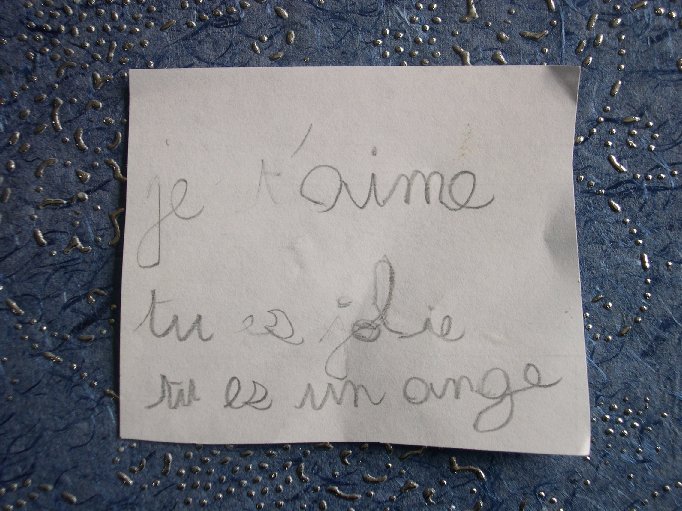 je t'aime
tu es jolie
tu es un ange